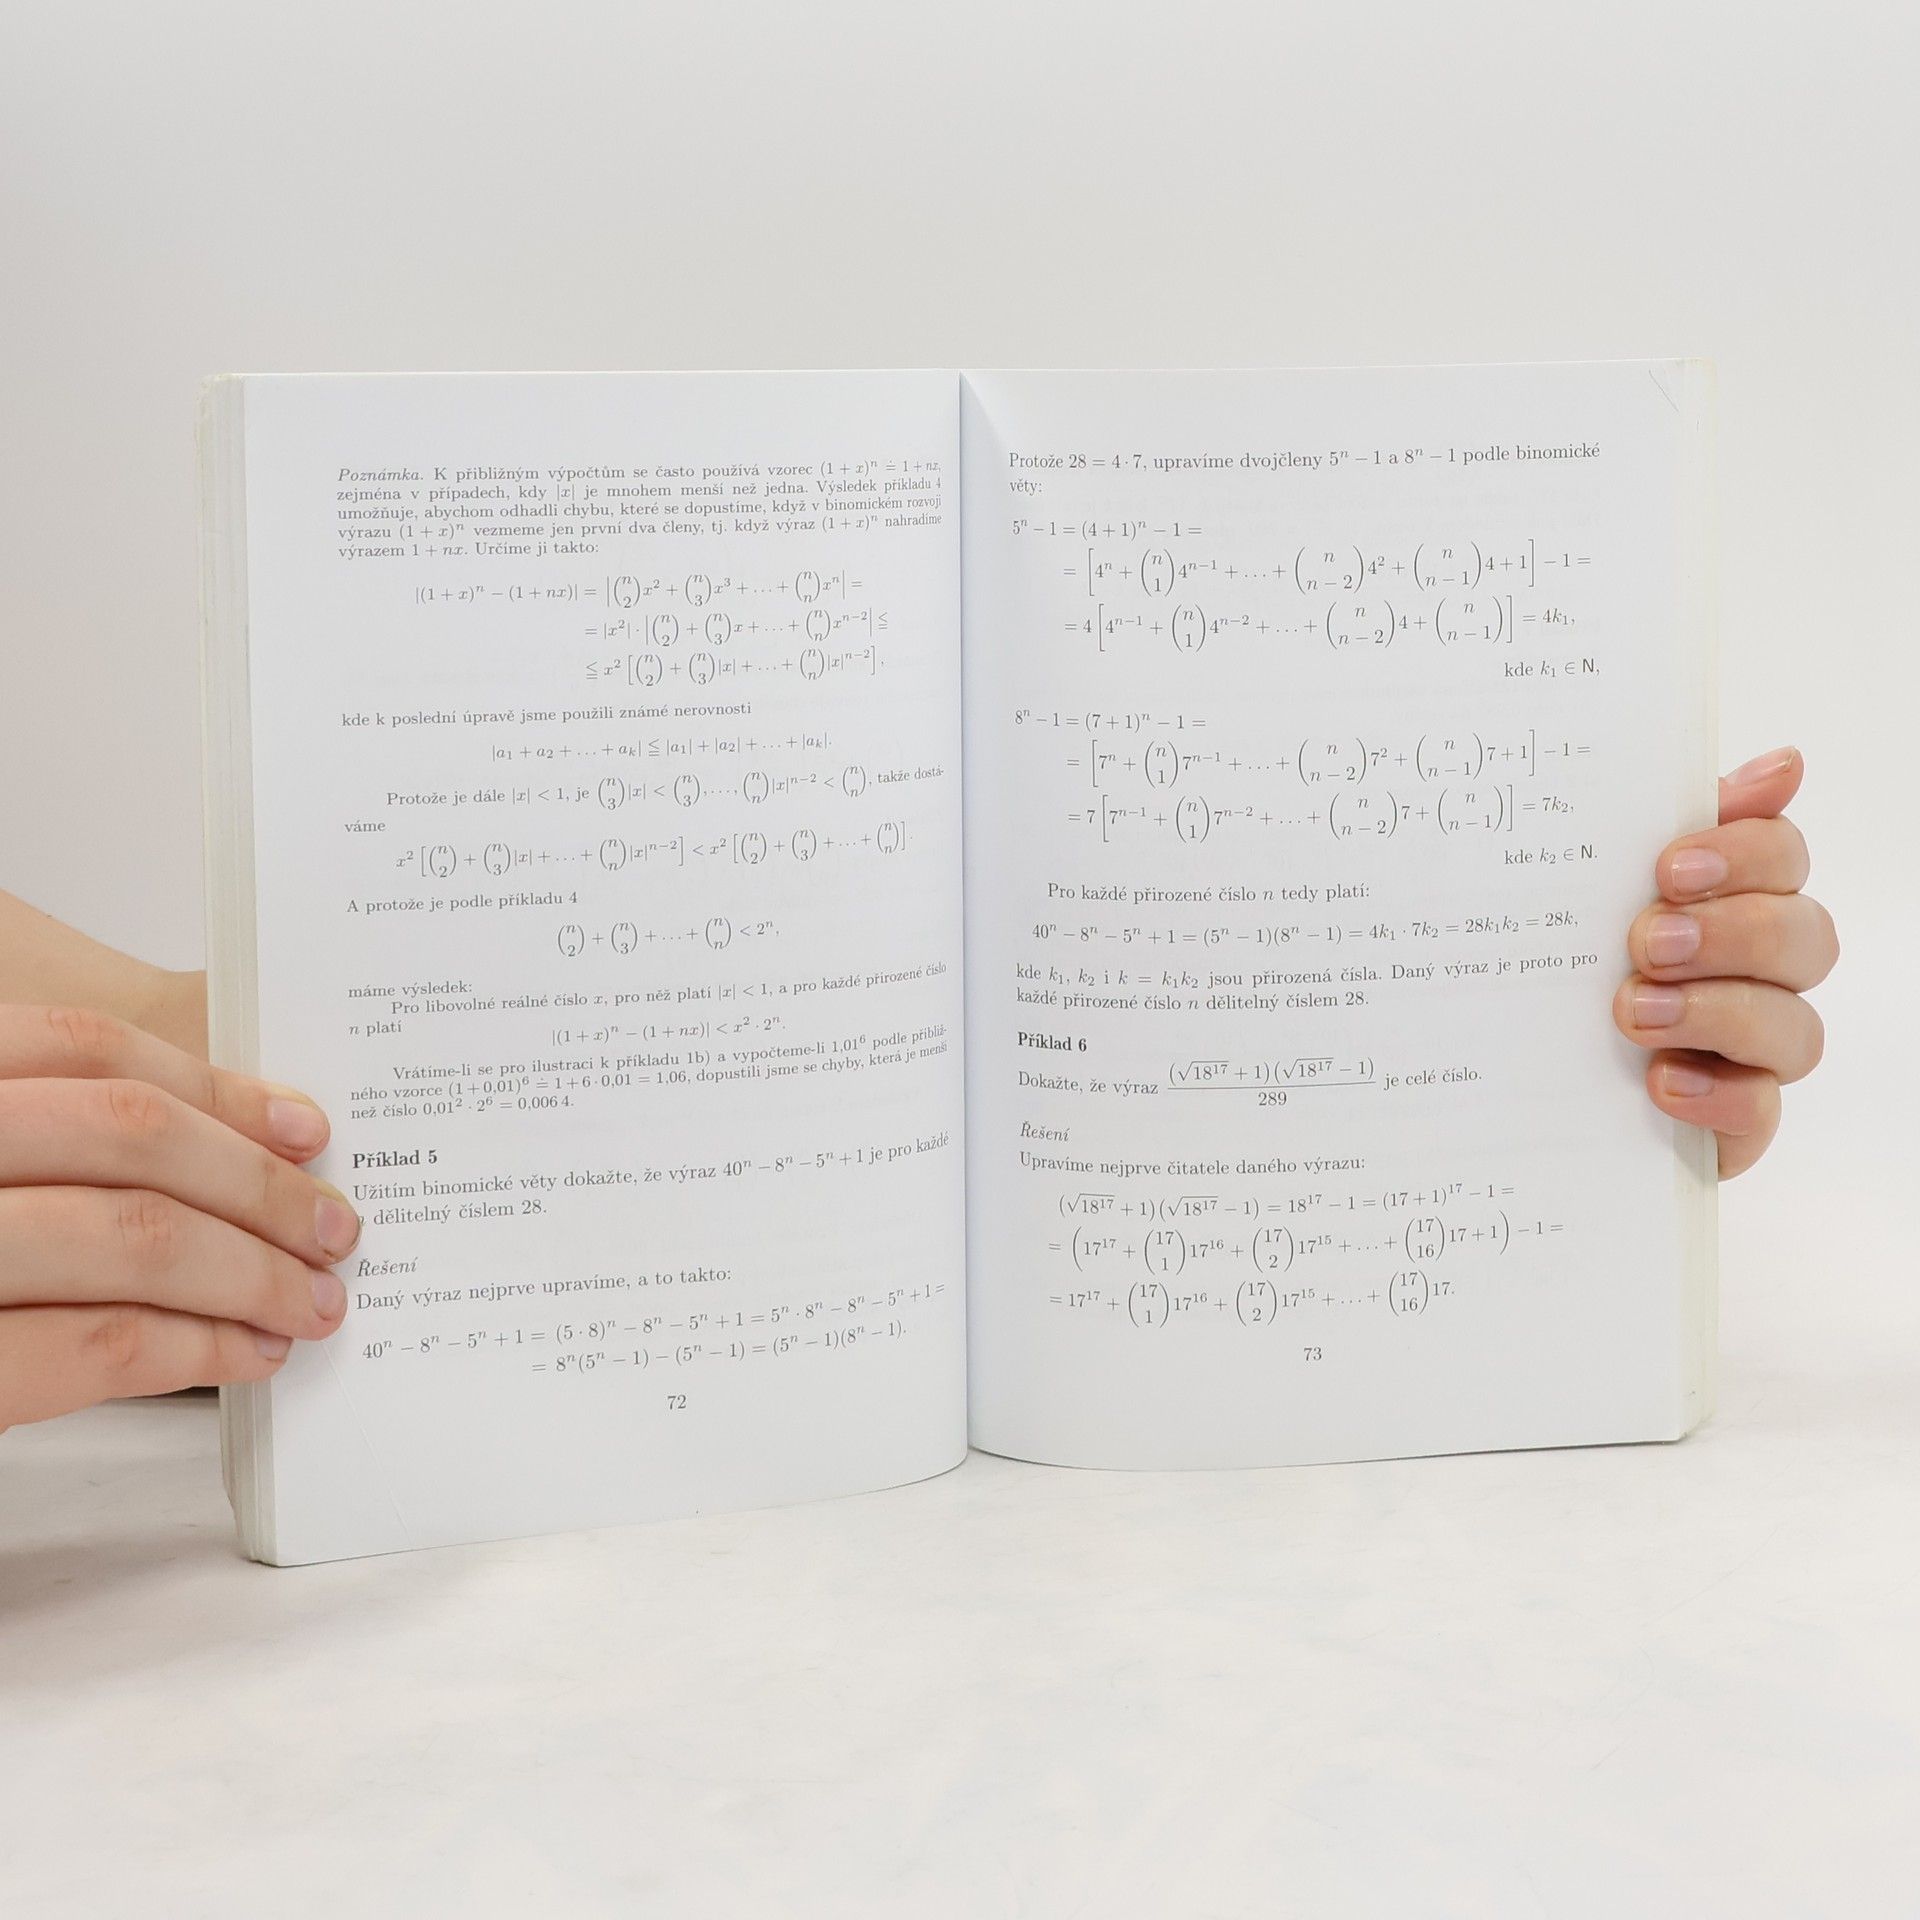 Poznámka. K přibližným výpočtům se často používá vzorec (1 + x)ⁿ ≐ 1 + nx,
zejména v případech, kdy |x| je mnohem menší než jedna. Výsledek příkladu 4
umožňuje, abychom odhadli chybu, které se dopustíme, když v binomickém rozvoji
výrazu (1 + x)ⁿ vezmeme jen první dva členy, tj. když výraz (1 + x)ⁿ nahradíme
výrazem 1 + nx. Určíme ji takto:
|(1 + x)ⁿ − (1 + nx)| = |(n 2)x² + (n 3)x³ + ... + (n n)xⁿ| =
= |x²| · |(n 2) + (n 3)x + ... + (n n)xⁿ⁻²| ≦
≦ x² [(n 2) + (n 3)|x| + ... + (n n)|x|ⁿ⁻²],
kde k poslední úpravě jsme použili známé nerovnosti
|a₁ + a₂ + ... + aₖ| ≦ |a₁| + |a₂| + ... + |aₖ|.
Protože je dále |x| < 1, je (n 3)|x| < (n 3), ..., (n n)|x|ⁿ⁻² < (n n), takže dostá-
váme
x² [(n 2) + (n 3)|x| + ... + (n n)|x|ⁿ⁻²] < x² [(n 2) + (n 3) + ... + (n n)].
A protože je podle příkladu 4
(n 2) + (n 3) + ... + (n n) < 2ⁿ,
máme výsledek:
Pro libovolné reálné číslo x, pro něž platí |x| < 1, a pro každé přirozené číslo
n platí
|(1 + x)ⁿ − (1 + nx)| < x² · 2ⁿ.
Vrátíme-li se pro ilustraci k příkladu 1b) a vypočteme-li 1,01⁶ podle přibliž-
ného vzorce (1 + 0,01)⁶ ≐ 1 + 6 · 0,01 = 1,06, dopustili jsme se chyby, která je menší
než číslo 0,01² · 2⁶ = 0,006 4.
Příklad 5
Užitím binomické věty dokažte, že výraz 40ⁿ − 8ⁿ − 5ⁿ + 1 je pro každé
dělitelný číslem 28.
Řešení
Daný výraz nejprve upravíme, a to takto:
40ⁿ − 8ⁿ − 5ⁿ + 1 = (5 · 8)ⁿ − 8ⁿ − 5ⁿ + 1 = 5ⁿ · 8ⁿ − 8ⁿ − 5ⁿ + 1 =
= 8ⁿ(5ⁿ − 1) − (5ⁿ − 1) = (5ⁿ − 1)(8ⁿ − 1).
72
Protože 28 = 4 · 7, upravíme dvojčleny 5ⁿ − 1 a 8ⁿ − 1 podle binomické
věty:
5ⁿ − 1 = (4 + 1)ⁿ − 1 =
= [4ⁿ + (n 1)4ⁿ⁻¹ + ... + (n n − 2)4² + (n n − 1)4 + 1] − 1 =
= 4 [4ⁿ⁻¹ + (n 1)4ⁿ⁻² + ... + (n n − 2)4 + (n n − 1)] = 4k₁,
kde k₁ ∈ N,
8ⁿ − 1 = (7 + 1)ⁿ − 1 =
= [7ⁿ + (n 1)7ⁿ⁻¹ + ... + (n n − 2)7² + (n n − 1)7 + 1] − 1 =
= 7 [7ⁿ⁻¹ + (n 1)7ⁿ⁻² + ... + (n n − 2)7 + (n n − 1)] = 7k₂,
kde k₂ ∈ N.
Pro každé přirozené číslo n tedy platí:
40ⁿ − 8ⁿ − 5ⁿ + 1 = (5ⁿ − 1)(8ⁿ − 1) = 4k₁ · 7k₂ = 28k₁k₂ = 28k,
kde k₁, k₂ i k = k₁k₂ jsou přirozená čísla. Daný výraz je proto pro
každé přirozené číslo n dělitelný číslem 28.
Příklad 6
Dokažte, že výraz (√18¹⁷ + 1)(√18¹⁷ − 1) / 289 je celé číslo.
Řešení
Upravíme nejprve čitatele daného výrazu:
(√18¹⁷ + 1)(√18¹⁷ − 1) = 18¹⁷ − 1 = (17 + 1)¹⁷ − 1 =
= (17¹⁷ + (17 1)17¹⁶ + (17 2)17¹⁵ + ... + (17 16)17 + 1) − 1 =
= 17¹⁷ + (17 1)17¹⁶ + (17 2)17¹⁵ + ... + (17 16)17.
73